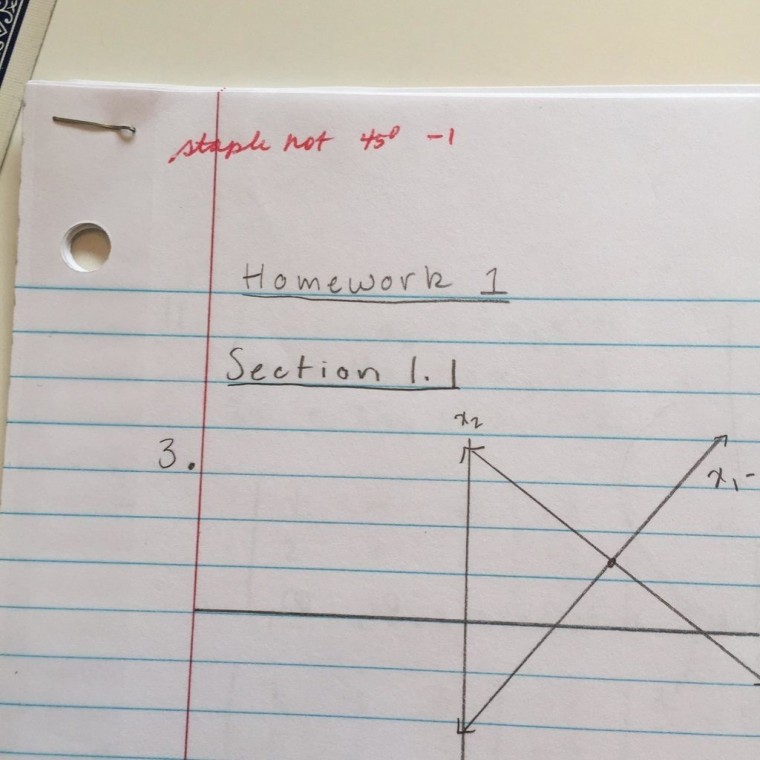 staple not 45° -1
Homework 1
Section 1.1
x₂
3.
x₁-